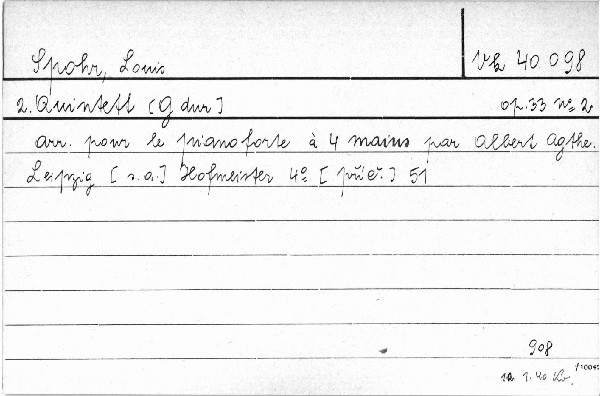 Spohr, Louis
Vk 40 098
2. Quintett [G dur]
op. 33 no 2
arr. pour le pianoforte à 4 mains par Albert Agthe.
Leipzig [s.a.] Hofmeister 4o [příč.] 51
908
1.40